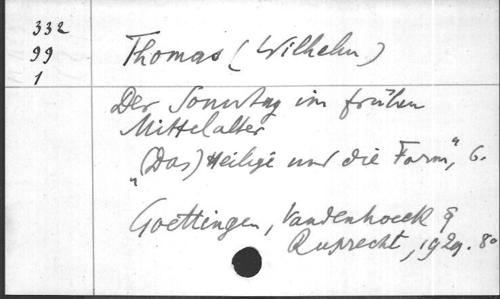 332
99
1
Thomas (Wilhelm)
Der Sonntag im frühen
Mittelalter
"(Das) Heilige und die Form", 6.
Goettingen, Vandenhoeck &
Ruprecht, 1929. 8°